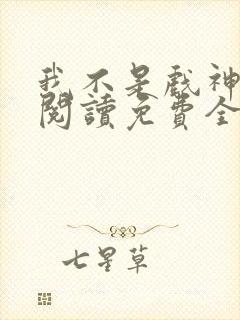 我不是戲神
閱讀免費全
七星草